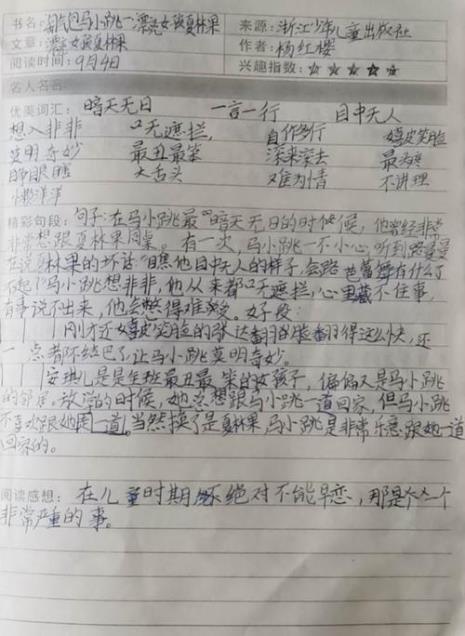 书名：淘气包马小跳—漂亮女孩夏林果
来源：浙江少年儿童出版社
文章：漂亮女孩夏林果
作者：杨红樱
阅读时间：9月4日
兴趣指数：☆☆☆☆☆
名人名言：
优美词汇：暗天无日 一言一行 目中无人
想入非非 口无遮拦， 自作多行 嬉皮笑脸
莫明奇妙 最丑最笨 深来深去 最为难
大舌头 难为情 不讲理
懒洋洋
精彩句段：句子：在马小跳最"暗天无日的时候，他曾经非常
非常想跟夏林果同桌。有一次，马小跳一不小心听到路曼曼
在说夏林果的坏话"瞧他目中无人的样子，会跳芭蕾舞有什么了
不起！"马小跳想非非，他从来都口无遮拦，心里藏不住事，
有事说不出来，他会憋得难受。好段：
刚才还嬉皮笑脸的张达翻脸翻得这么快，还
一点都不结巴了，让马小跳莫明奇妙。
安琪儿是全班最丑最笨的女孩子，偏偏又是马小跳
的邻居，放学的时候，她总想跟马小跳一道回家，但马小跳
不喜欢跟她周一道。当然换了是夏林果，马小跳是非常乐意跟她一道
回家的。
阅读感想：在儿童时期 绝对不能早恋，那是个一个
非常严重的事。